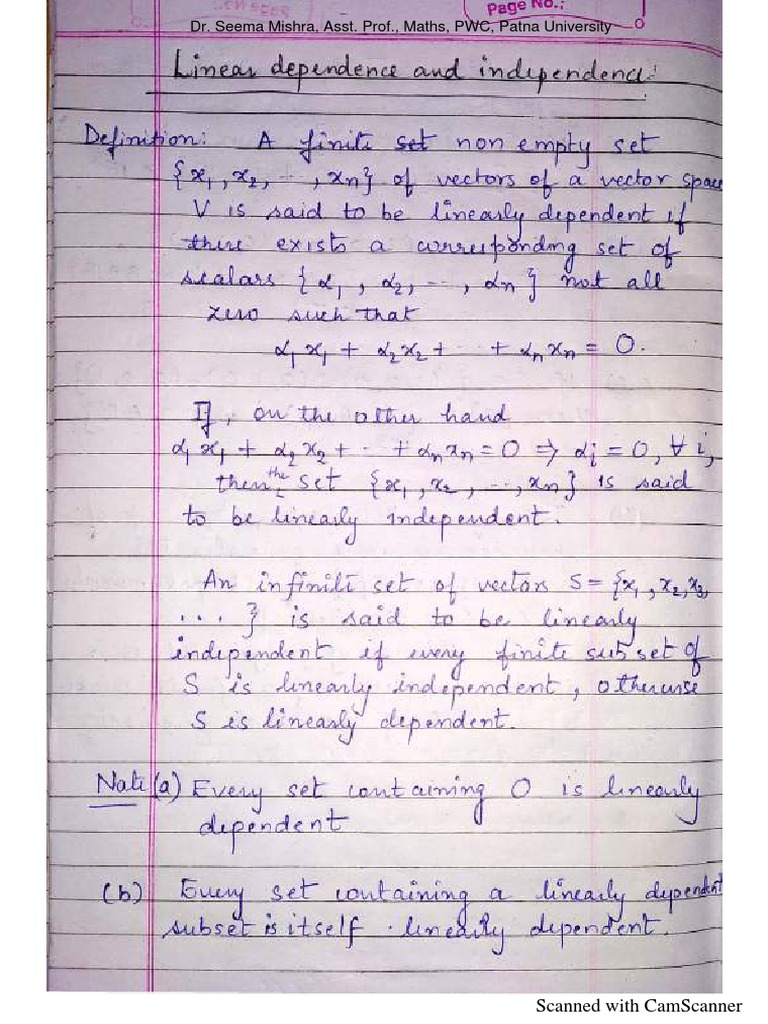 Page No.:
Dr. Seema Mishra, Asst. Prof., Maths, PWC, Patna University
Linear dependence and independence:
Definition: A finite set non empty set
{x₁, x₂, ..., xₙ} of vectors of a vector space
V is said to be linearly dependent if
there exists a corresponding set of
scalars {α₁, α₂, ..., αₙ} not all
zero such that
α₁x₁ + α₂x₂ + ... + αₙxₙ = 0.
If, on the other hand
α₁x₁ + α₂x₂ + ... + αₙxₙ = 0 ⇒ αᵢ = 0, ∀ i,
then the set {x₁, x₂, ..., xₙ} is said
to be linearly independent.
An infinite set of vectors S = {x₁, x₂, x₃,
...} is said to be linearly
independent if every finite subset of
S is linearly independent, otherwise
S is linearly dependent.
Note (a) Every set containing 0 is linearly
dependent
(b) Every set containing a linearly dependent
subset is itself linearly dependent.
Scanned with CamScanner